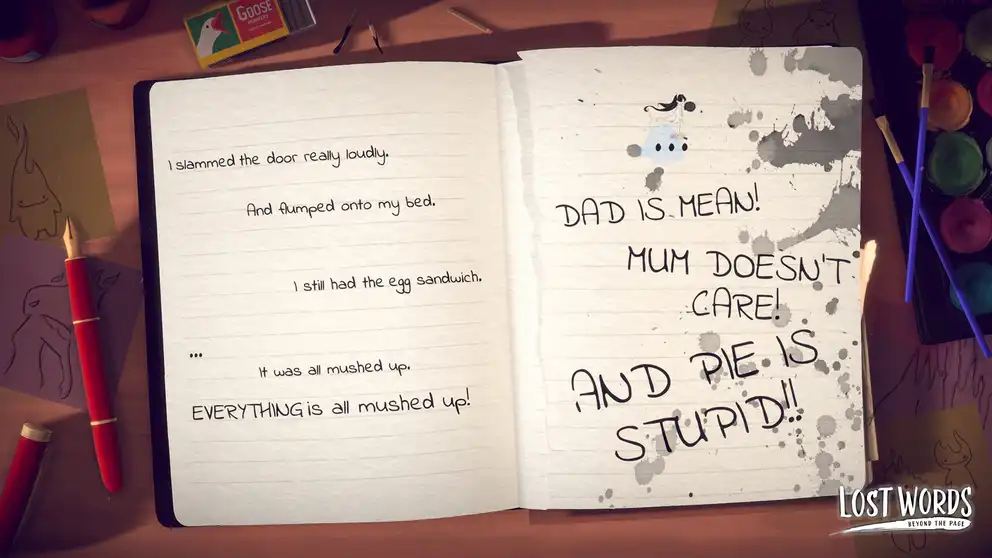 GOOSE
I slammed the door really loudly.
And flumped onto my bed.
I still had the egg sandwich.
...
It was all mushed up.
EVERYTHING is all mushed up!
...
DAD IS MEAN!
MUM DOESN'T
CARE!
AND PIE IS
STUPID!!
LOST WORDS
BEYOND THE PAGE